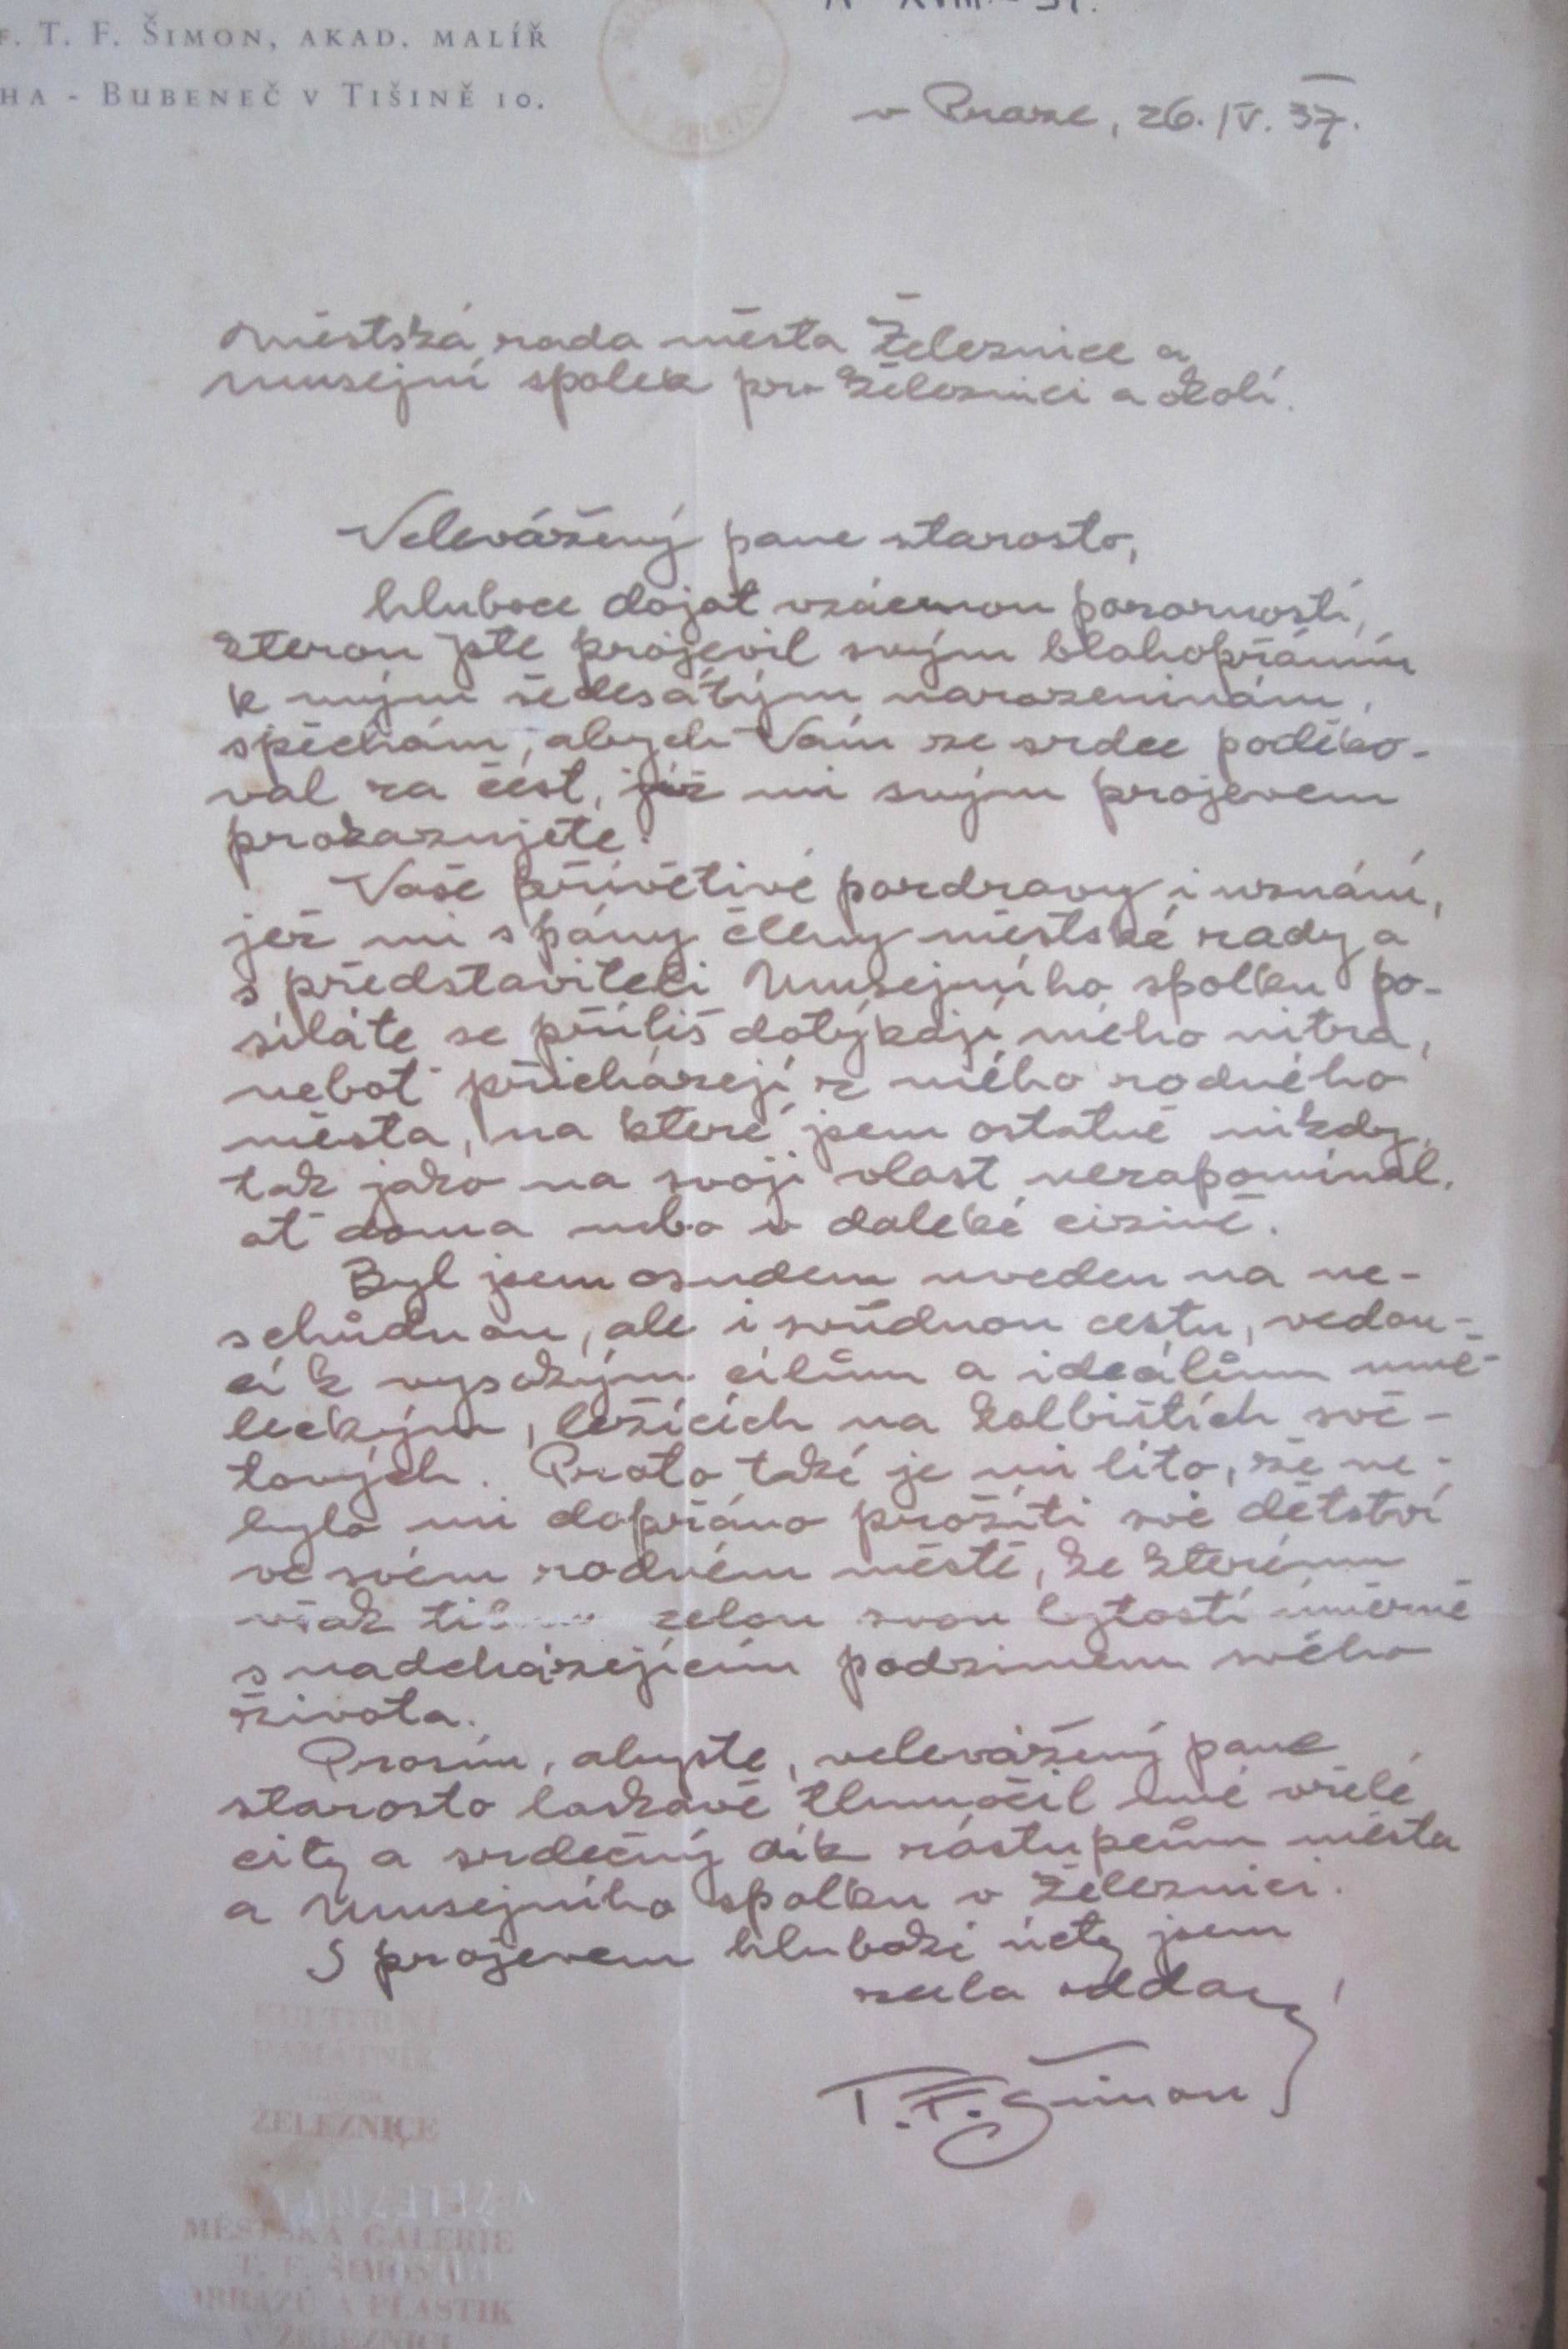 T. F. ŠIMON, AKAD. MALÍŘ
HA - BUBENEČ V TIŠINĚ 10.
v Praze, 26. IV. 37.
Městská rada města Železnice a
Musejní spolek pro Železnici a okolí.
Velevážený pane starosto,
hluboce dojat vzácnou pozorností,
kterou jste projevil svým blahopřáním
k mým šedesátým narozeninám,
spěchám, abych Vám ze srdce poděko-
val za čest, již mi svým projevem
prokazujete.
Vaše přívětivé pozdravy i uznání,
jež mi s pány členy městské rady a
s představiteli Musejního spolku po-
síláte se příliš dotýkají mého nitra,
neboť přicházejí z mého rodného
města, na které jsem ostatně nikdy,
tak jako na svoji vlast nezapomínal,
ať doma nebo v daleké cizině.
Byl jsem osudem uveden na ne-
schůdnou, ale i svůdnou cestu, vedou-
cí k vysokým cílům a ideálům umě-
leckým, ležících na kolbištích svě-
tových. Proto také je mi líto, že ne-
bylo mi dopřáno prožíti své dětství
ve svém rodném městě, ke kterému
však celou svou bytostí úměrně
s nadcházejícím podzimem svého
života.
Prosím, abyste, velevážený pane
starosto laskavě tlumočil mé vřelé
city a srdečný dík zástupcům města
a Musejního spolku v Železnici.
S projevem hluboké úcty jsem
zcela oddaný
T. F. Šimon
KULTURNÍ
PAMÁTNÍK
ŽELEZNICE
MĚSTSKÁ GALERIE
T. F. ŠIMONA
OBRAZŮ A PLASTIK
V ŽELEZNICI